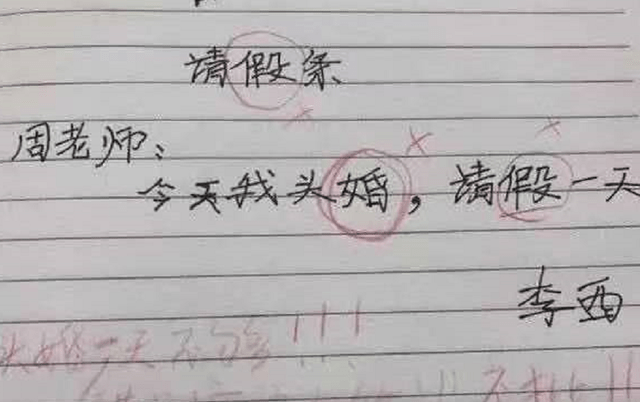 请假条
周老师:
今天我头婚,请假一天
李西
头婚一天不够!!!